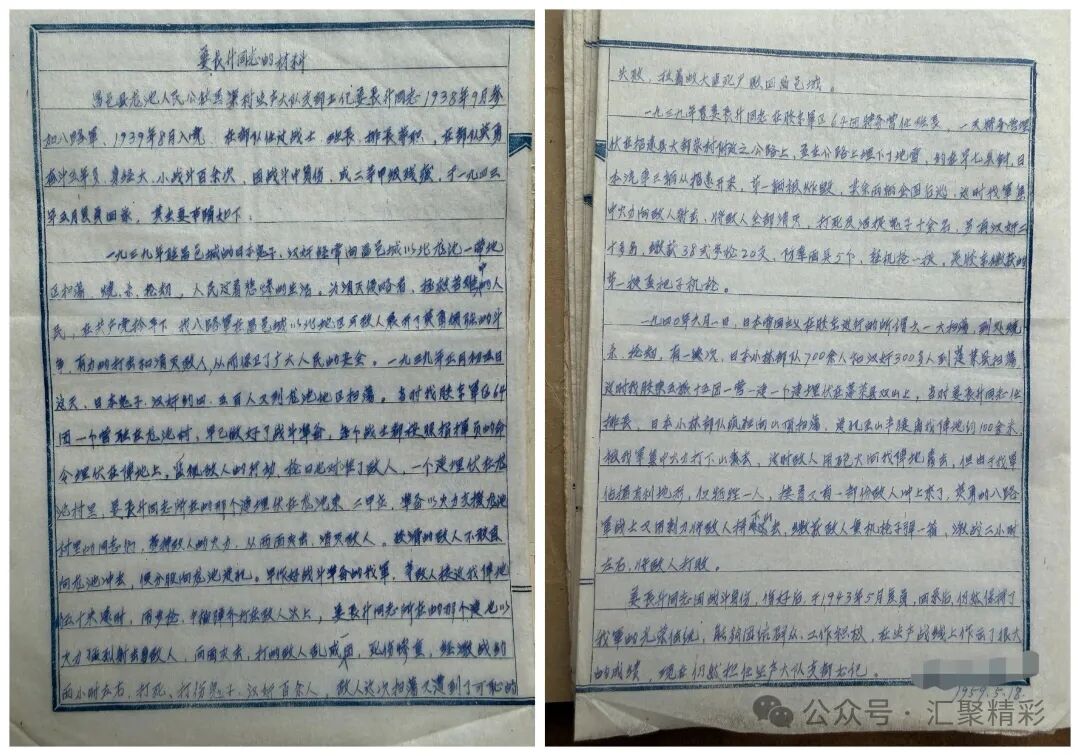 姜长升同志的材料
昌邑县龙池人民公社 村生产大队支部书记姜长升同志1938年9月参
加八路军，1939年8月入党，在部队任过战士、班长、排长等职，在部队英勇
奋斗五年多，身经大、小战斗百余次，因战斗中负伤，成二等甲级残废，于一九四三
年五月复员回家，其主要事迹如下：
一九三九年驻昌邑城的日本鬼子、汉奸经常向昌邑城以北龙池一带地
区扫荡、烧、杀、抢掠，人民过着悲惨的生活。为消灭侵略者，拯救苦难中的人
民，在共产党领导下，我八路军在昌邑城以北地区与敌人展开了英勇顽强的斗
争，有力的打击和消灭敌人，从而保卫了广大人民的安全。一九三九年正月初五日
这天，日本鬼子、汉奸约四、五百人又到龙池地区扫荡。当时我胶东军区64
团一个营驻在龙池村，早已做好了战斗准备，每个战士都按照指挥员的命
令埋伏在阵地上，监视敌人的行动，枪口也对准了敌人，一个连埋伏在龙
池村里，姜长升同志所在的那个连埋伏在龙池东二甲庄，准备以火力支援龙池
村里的同志们，牵掉敌人的火力，从两面夹击，消灭敌人。狡滑的敌人不敢直
向龙池冲去，便分股向龙池进犯。早作好战斗准备的我军，等敌人接近我阵地
伍十米远时，用步枪、手榴弹齐打在敌人头上，姜长升同志所在的那个连也以
火力猛烈射击敌人，两面夹击，打的敌人乱成一团，死伤惨重，经激战约
两小时左右，打死、打伤鬼子、汉奸百余人，敌人这次扫荡又遭到了可耻的
失败，拉着敌大车死尸败回昌邑城。
一九三九年夏姜长升同志在胶东军区64团特务营任班长，一天特务营埋
伏在招远县大部家村附近之公路上，并在公路上埋下了地雷，约在早七点钟，日
本汽车三辆从招远开来，第一辆被炸毁，其余两辆企图后逃，这时我军集
中火力向敌人射击，将敌人全部消灭，打死及活捉鬼子十余名，另有汉奸二
十多名，缴获38式步枪20支，防毒面具5个，轻机枪一挺，是胶东缴获的
第一挺歪把子机枪。
一九四〇年六月一日，日本帝国主义在胶东进行的所谓六一大扫荡，到处烧
杀、抢掠，有一次，日本小林部队700余人和汉奸300多人到蓬莱县扫荡
这时我胶东五旅十五团一营一连一个连埋伏在蓬莱县双山上，当时姜长升同志任
排长，日本小林部队疯狂向山顶扫荡，进犯至山半腰离我阵地约100余米，
被我军集中火力打下山底去，这时敌人用砲火向我阵地轰击，但由于我军
占据有利地形，仅牺牲一人，接着又有一部份敌人冲上来了，英勇的八路
军战士又用刺刀将敌人拼下山去，缴获敌人重机枪子弹一箱，激战二小时
左右，将敌人打败。
姜长升同志因战斗负伤，伤好后，于1943年5月复员，回家后，仍然保持了
我军的光荣传统，能够团结群众、工作积极，在生产战线上作出了很大
的成绩，现在仍然担任生产大队支部书记。
1959.5.18.
公众号·汇聚精彩